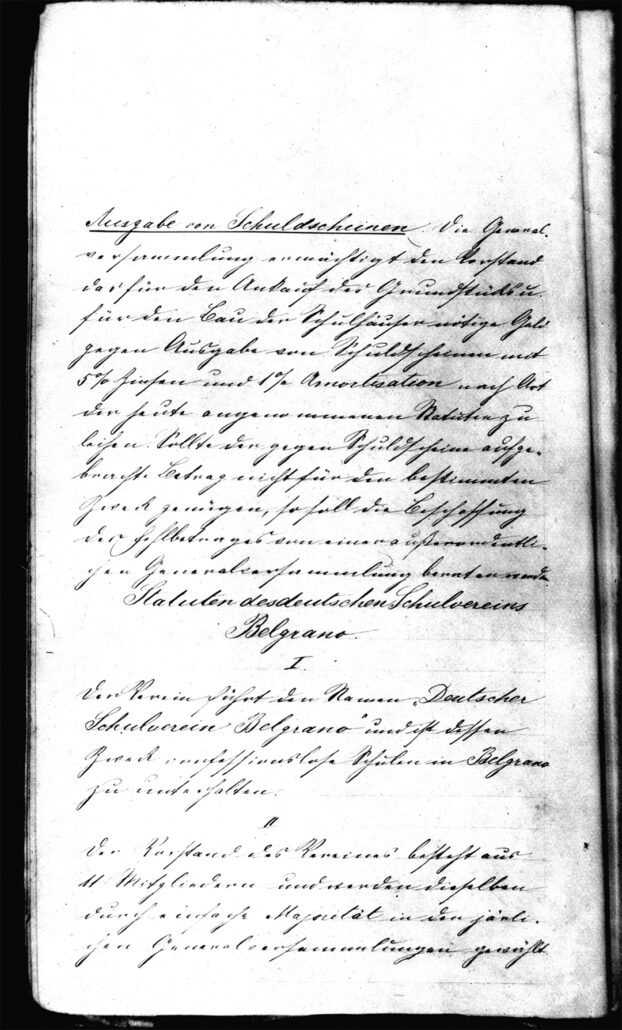 Ausgabe von Schuldscheinen. Die General-
versammlung ermächtigt den Vorstand
das für den Ankauf des Grundstücks u.
für den Bau der Schulhäuser nötige Geld
gegen Ausgabe von Schuldscheinen mit
5% Zinsen und 1% Amortisation nach Art
der heute angenommenen Statuten zu
leihen. Sollte der gegen Schuldscheine aufge-
brachte Betrag nicht für den bestimmten
Zweck genügen, so soll die Beschaffung
des Fehlbetrages von einer außerordentli-
chen Generalversammlung beraten werden
Statuten des deutschen Schulvereins
Belgrano.
I.
Der Verein führt den Namen „Deutscher
Schulverein Belgrano" und ist dessen
Zweck confessionslose Schulen in Belgrano
zu unterhalten.
II
Der Vorstand des Vereines besteht aus
11 Mitgliedern und werden dieselben
durch einfache Majorität in den järli-
chen Generalversammlungen gewählt